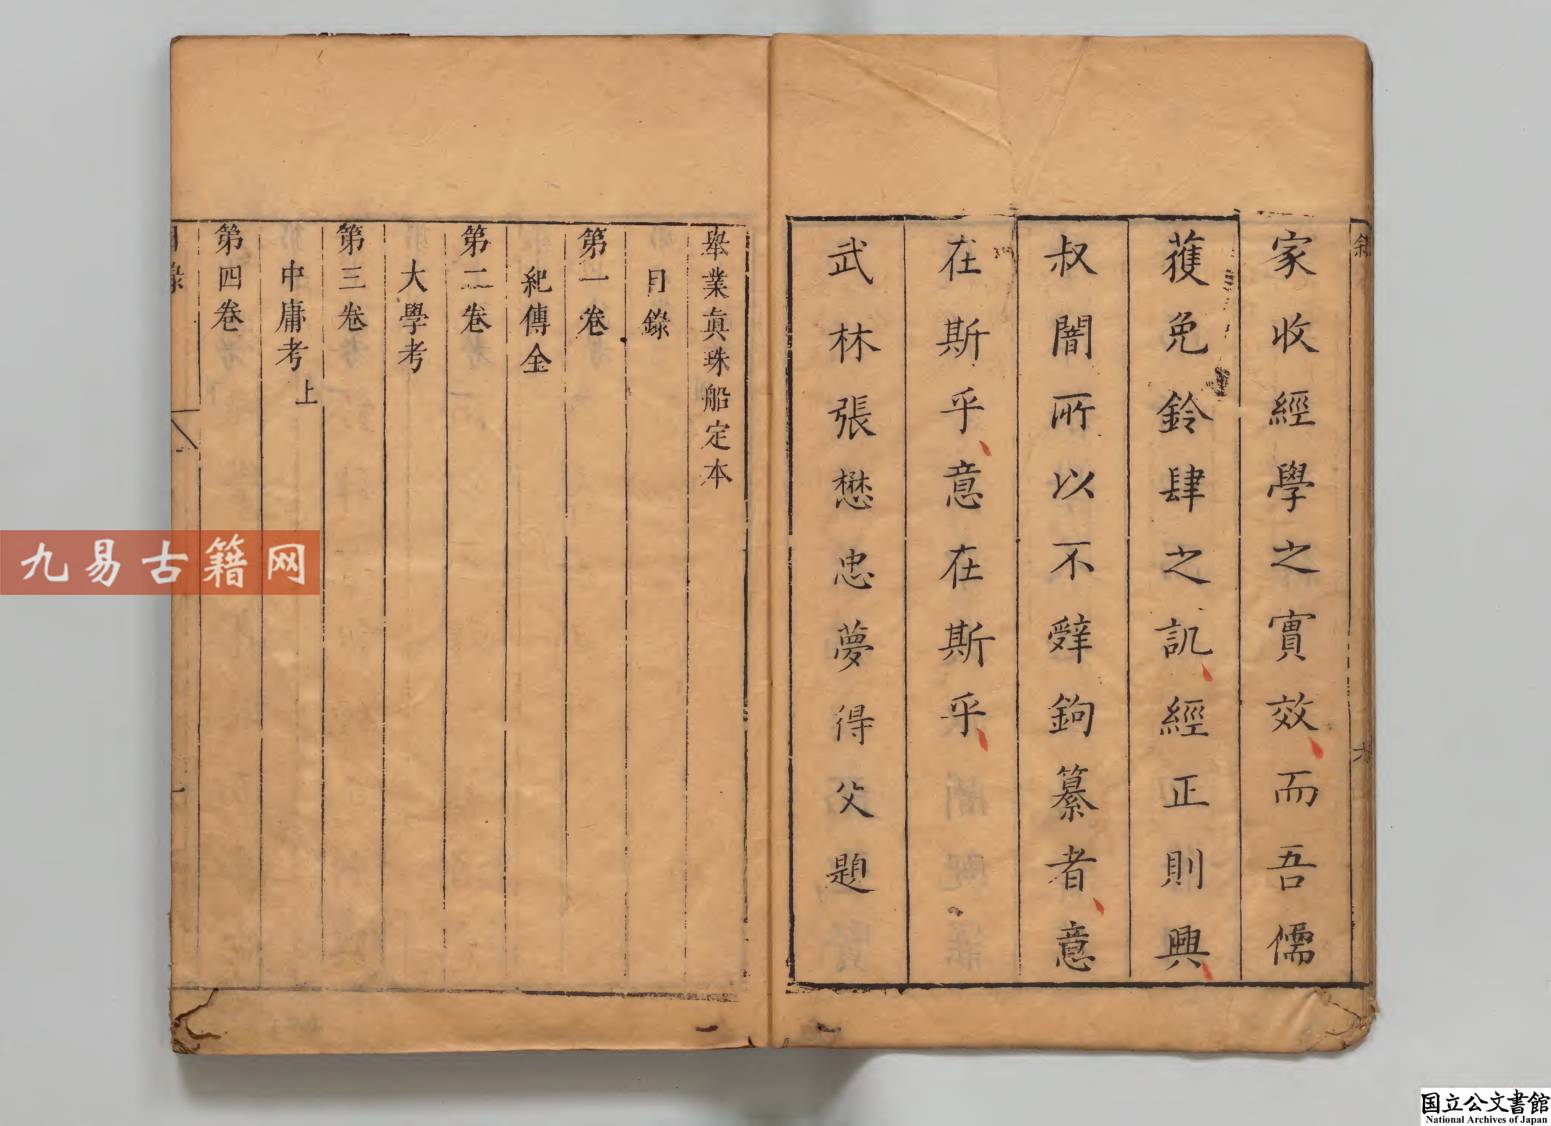 家收經學之實效而吾儒
蒦免鈴肆之訊經正則興
叔闇所以不辤鉤纂者意
在斯乎意在斯乎
武林張懋忠夢得父題
舉業眞珠船定本
目錄
第一卷
紀傳全
第二卷
大學考
第三卷
中庸考上
第四卷
目錄
一
六
九易古籍网
国立公文書館
National Archives of Japan